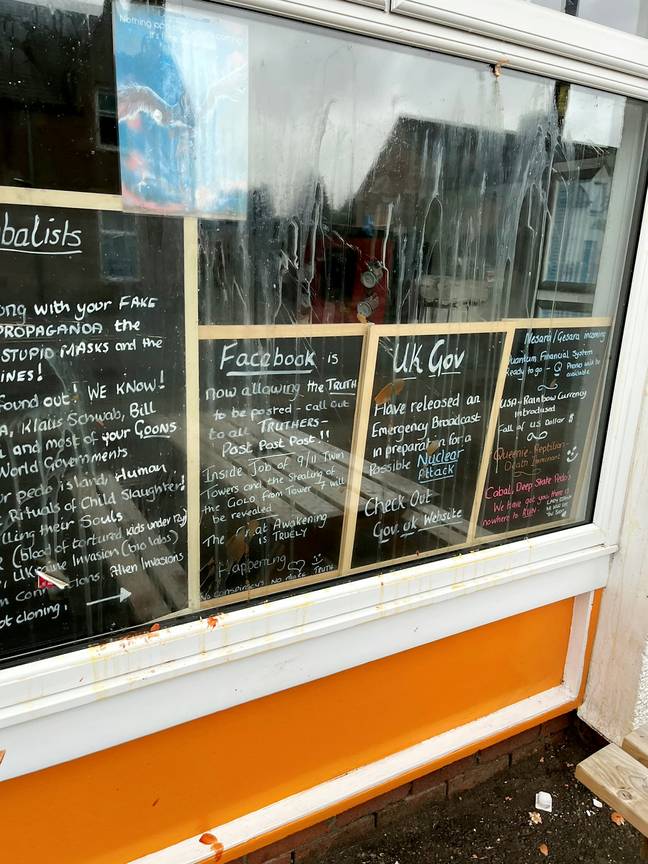 Nothing
balists
ong with your FAKE
PROPAGANDA the
STUPID MASKS and the
INES!
found out! WE KNOW!
A, Klaus Schwab, Bill
l and most of your GOONS
World Governments
r pedo island, Human
Rituals of Child Slaughter!
lling their Souls
(blood of tortured kids under 7y)
, Ukraine Invasion (bio labs)
Alien Invasions
ot cloning!
Facebook is
now allowing the TRUTH
to be posted - call out
to all TRUTHERS -
Post Post Post!!
Inside Job of 9/11 Twin
Towers and the Stealing of
the GOLD from Tower 7 will
be revealed
The Great Awakening
is TRUELY
Happening
No conspiracy no more TRUTH
UK Gov
Have released an
Emergency Broadcast
in preparation for a
Possible Nuclear
Attack
Check Out
Gov.uk Website
Nesara/Gesara incoming
Quantum Financial System
Ready to go - Phones will be
available
USA - Rainbow Currency
introduced
Fall of US Dollar $
Queenie - Reptilian -
Death Imminent
Cabal, Deep State Pedos
We have got you there is
nowhere to RUN